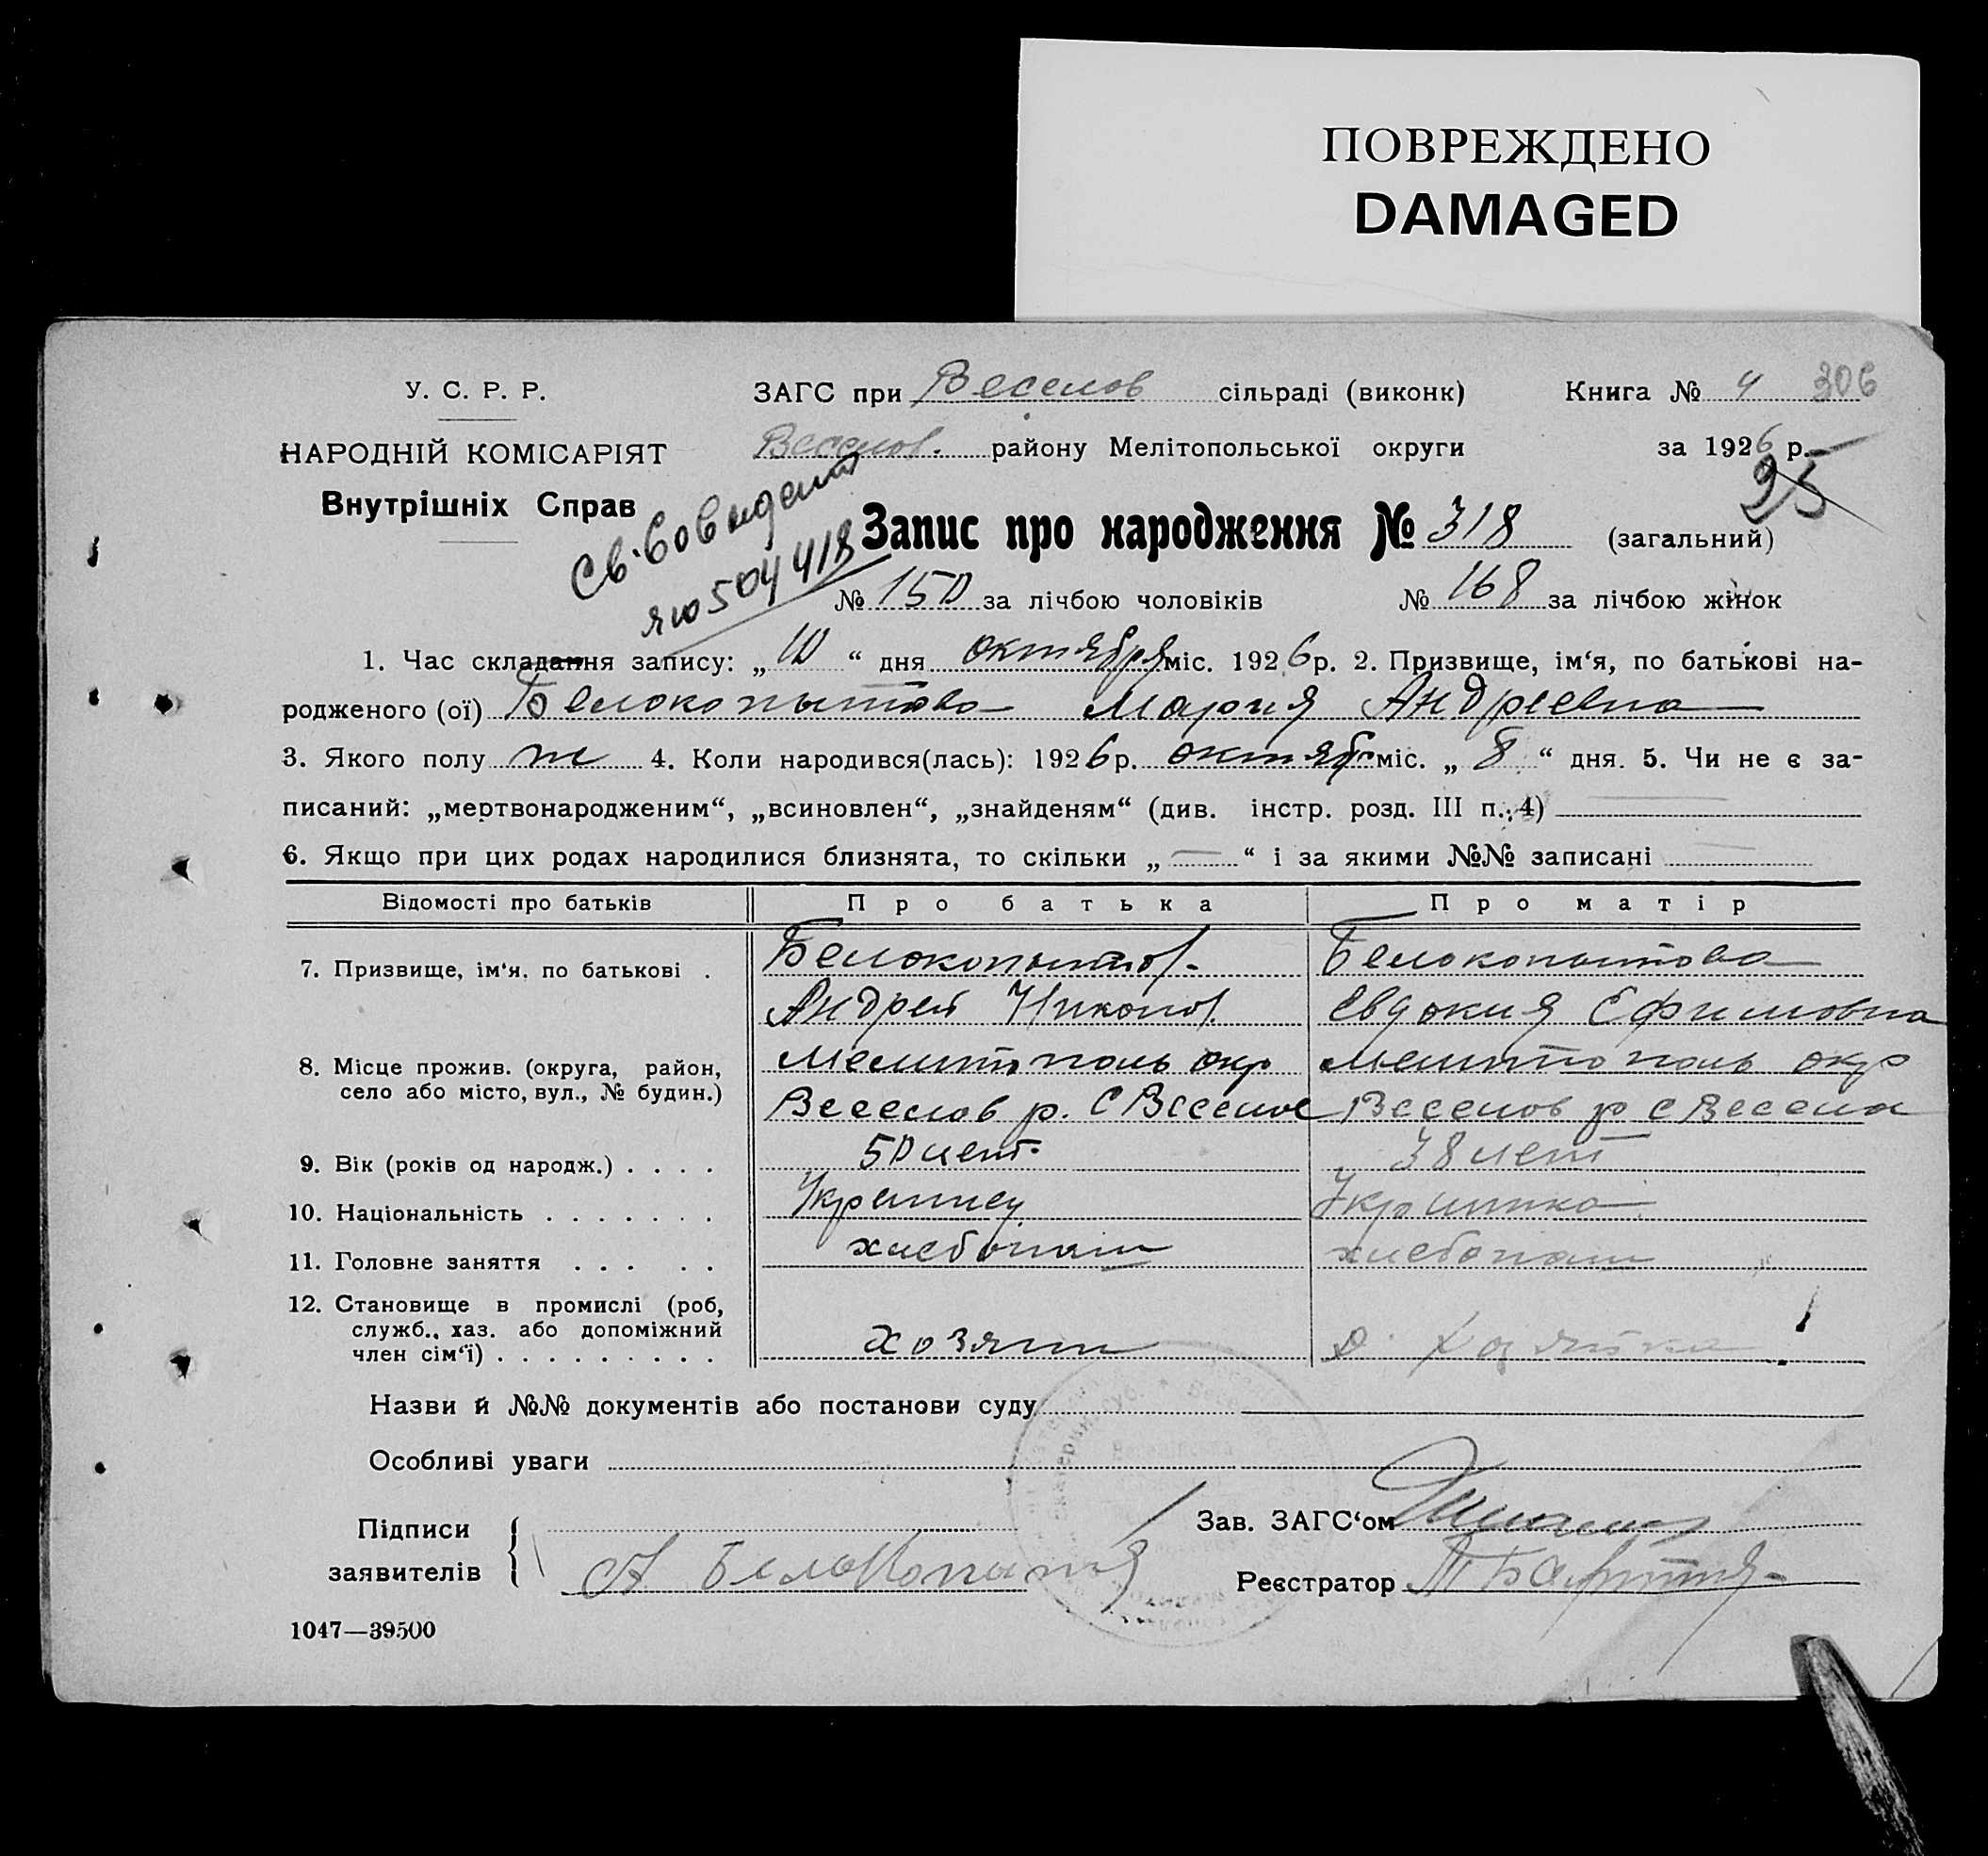 ПОВРЕЖДЕНО
DAMAGED
У. С. Р. Р.
ЗАГС при Веселов сільраді (виконк)
Книга № 4 306
НАРОДНІЙ КОМІСАРІЯТ
Веселов. району Мелітопольської округи
за 1926 р.
25
Внутрішніх Справ
Св-во видано
яю504418
Запис про народження № 318 (загальний)
№ 150 за лічбою чоловіків № 168 за лічбою жінок
1. Час складання запису: „ 10 “ дня октября міс. 1926 р. 2. Призвище, ім‘я, по батькові на-
родженого (ої) Белокопытова Мария Андреевна
3. Якого полу ж 4. Коли народився(лась): 1926 р. октябр міс. „ 8 “ дня. 5. Чи не є за-
писаний: „мертвонародженим“, „всиновлен“, „знайденям“ (див. інстр. розд. III п. 4)
6. Якщо при цих родах народилися близнята, то скільки „ — “ і за якими №№ записані
Відомості про батьків Про батька Про матір
7. Призвище, ім‘я, по батькові . Белокопытов. Белокопытова
Андрей Никол. Евдокия Ефимовна
8. Місце прожив. (округа, район, Мелитополь окр Мелитополь окр
село або місто, вул., № будин.) Веселов р. С Веселое Веселов р с Весела
9. Вік (років од народж.) . . . . 50 лет. 38 лет
10. Національність . . . . . . . Украинец Украинка
11. Головне заняття . . . . . хлебопаш хлебопаш
12. Становище в промислі (роб,
служб., хаз. або допоміжний
член сім‘ї) . . . . . . . . . хозяин д. хозяйка
Назви й №№ документів або постанови суду
Особливі уваги
Підписи
заявителів
Зав. ЗАГС‘ом
А Белокопытов
Реєстратор
1047—39500